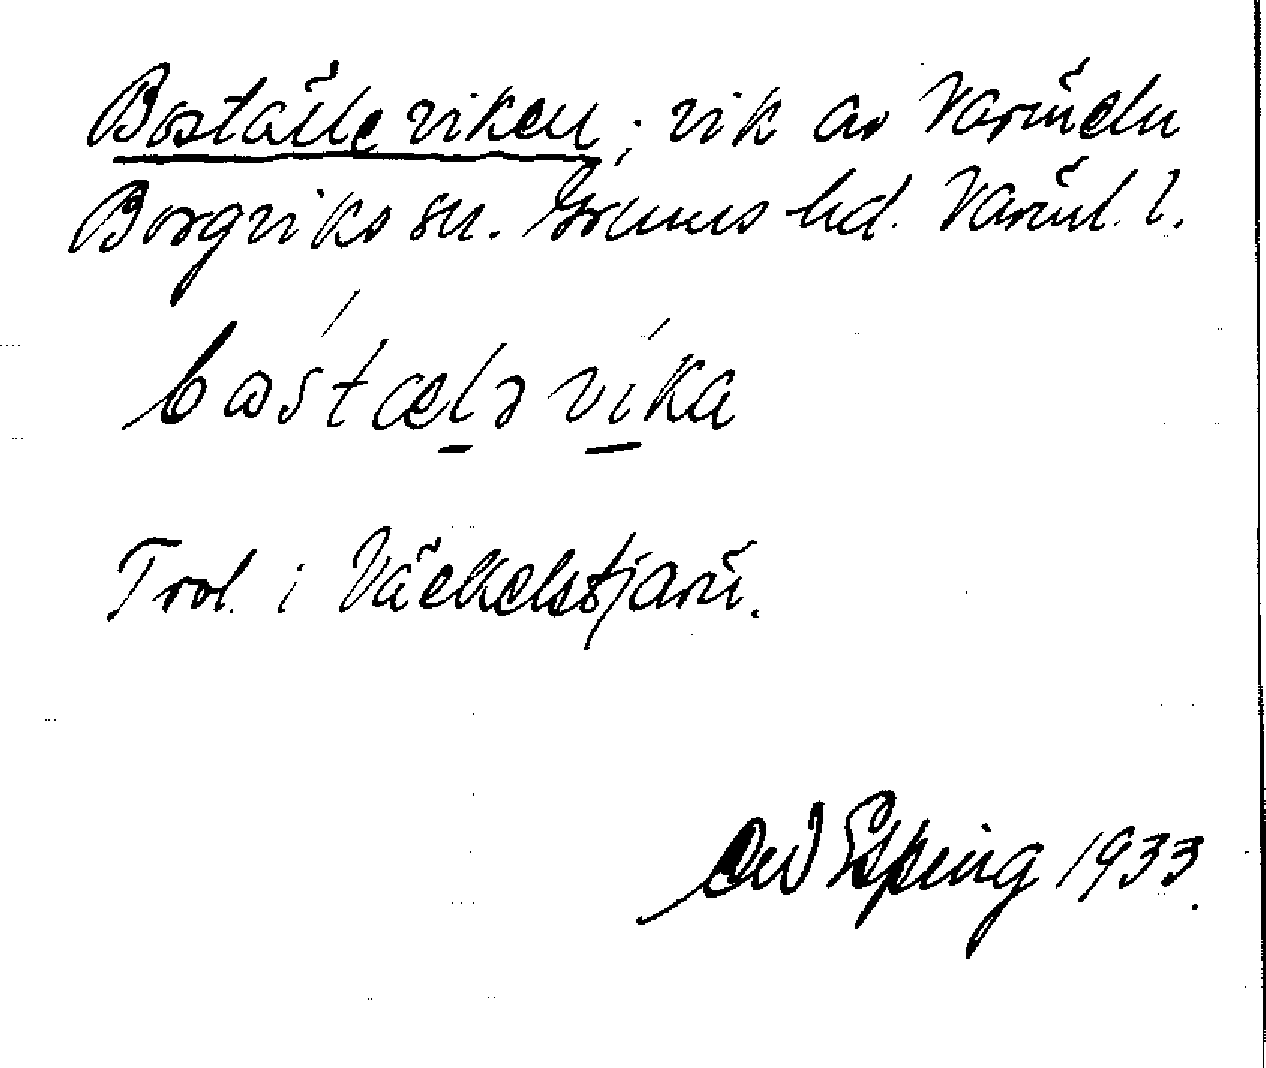 Boställeviken; vik av Värmeln
Borgviks sn. Grums hd. Värml. l.
bostæləvika
Trol. i Väckelstjärn.
Ovd Esping 1933.